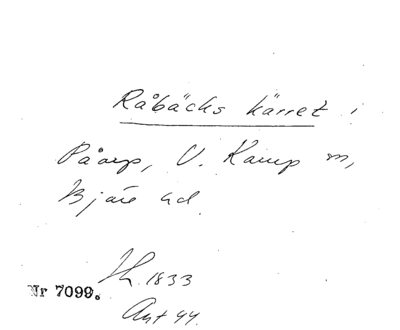 Råbäcks kärret i
Påarp, V. Karup sn,
Bjäre hd.
Nr 7099.
1833
Akt 44.